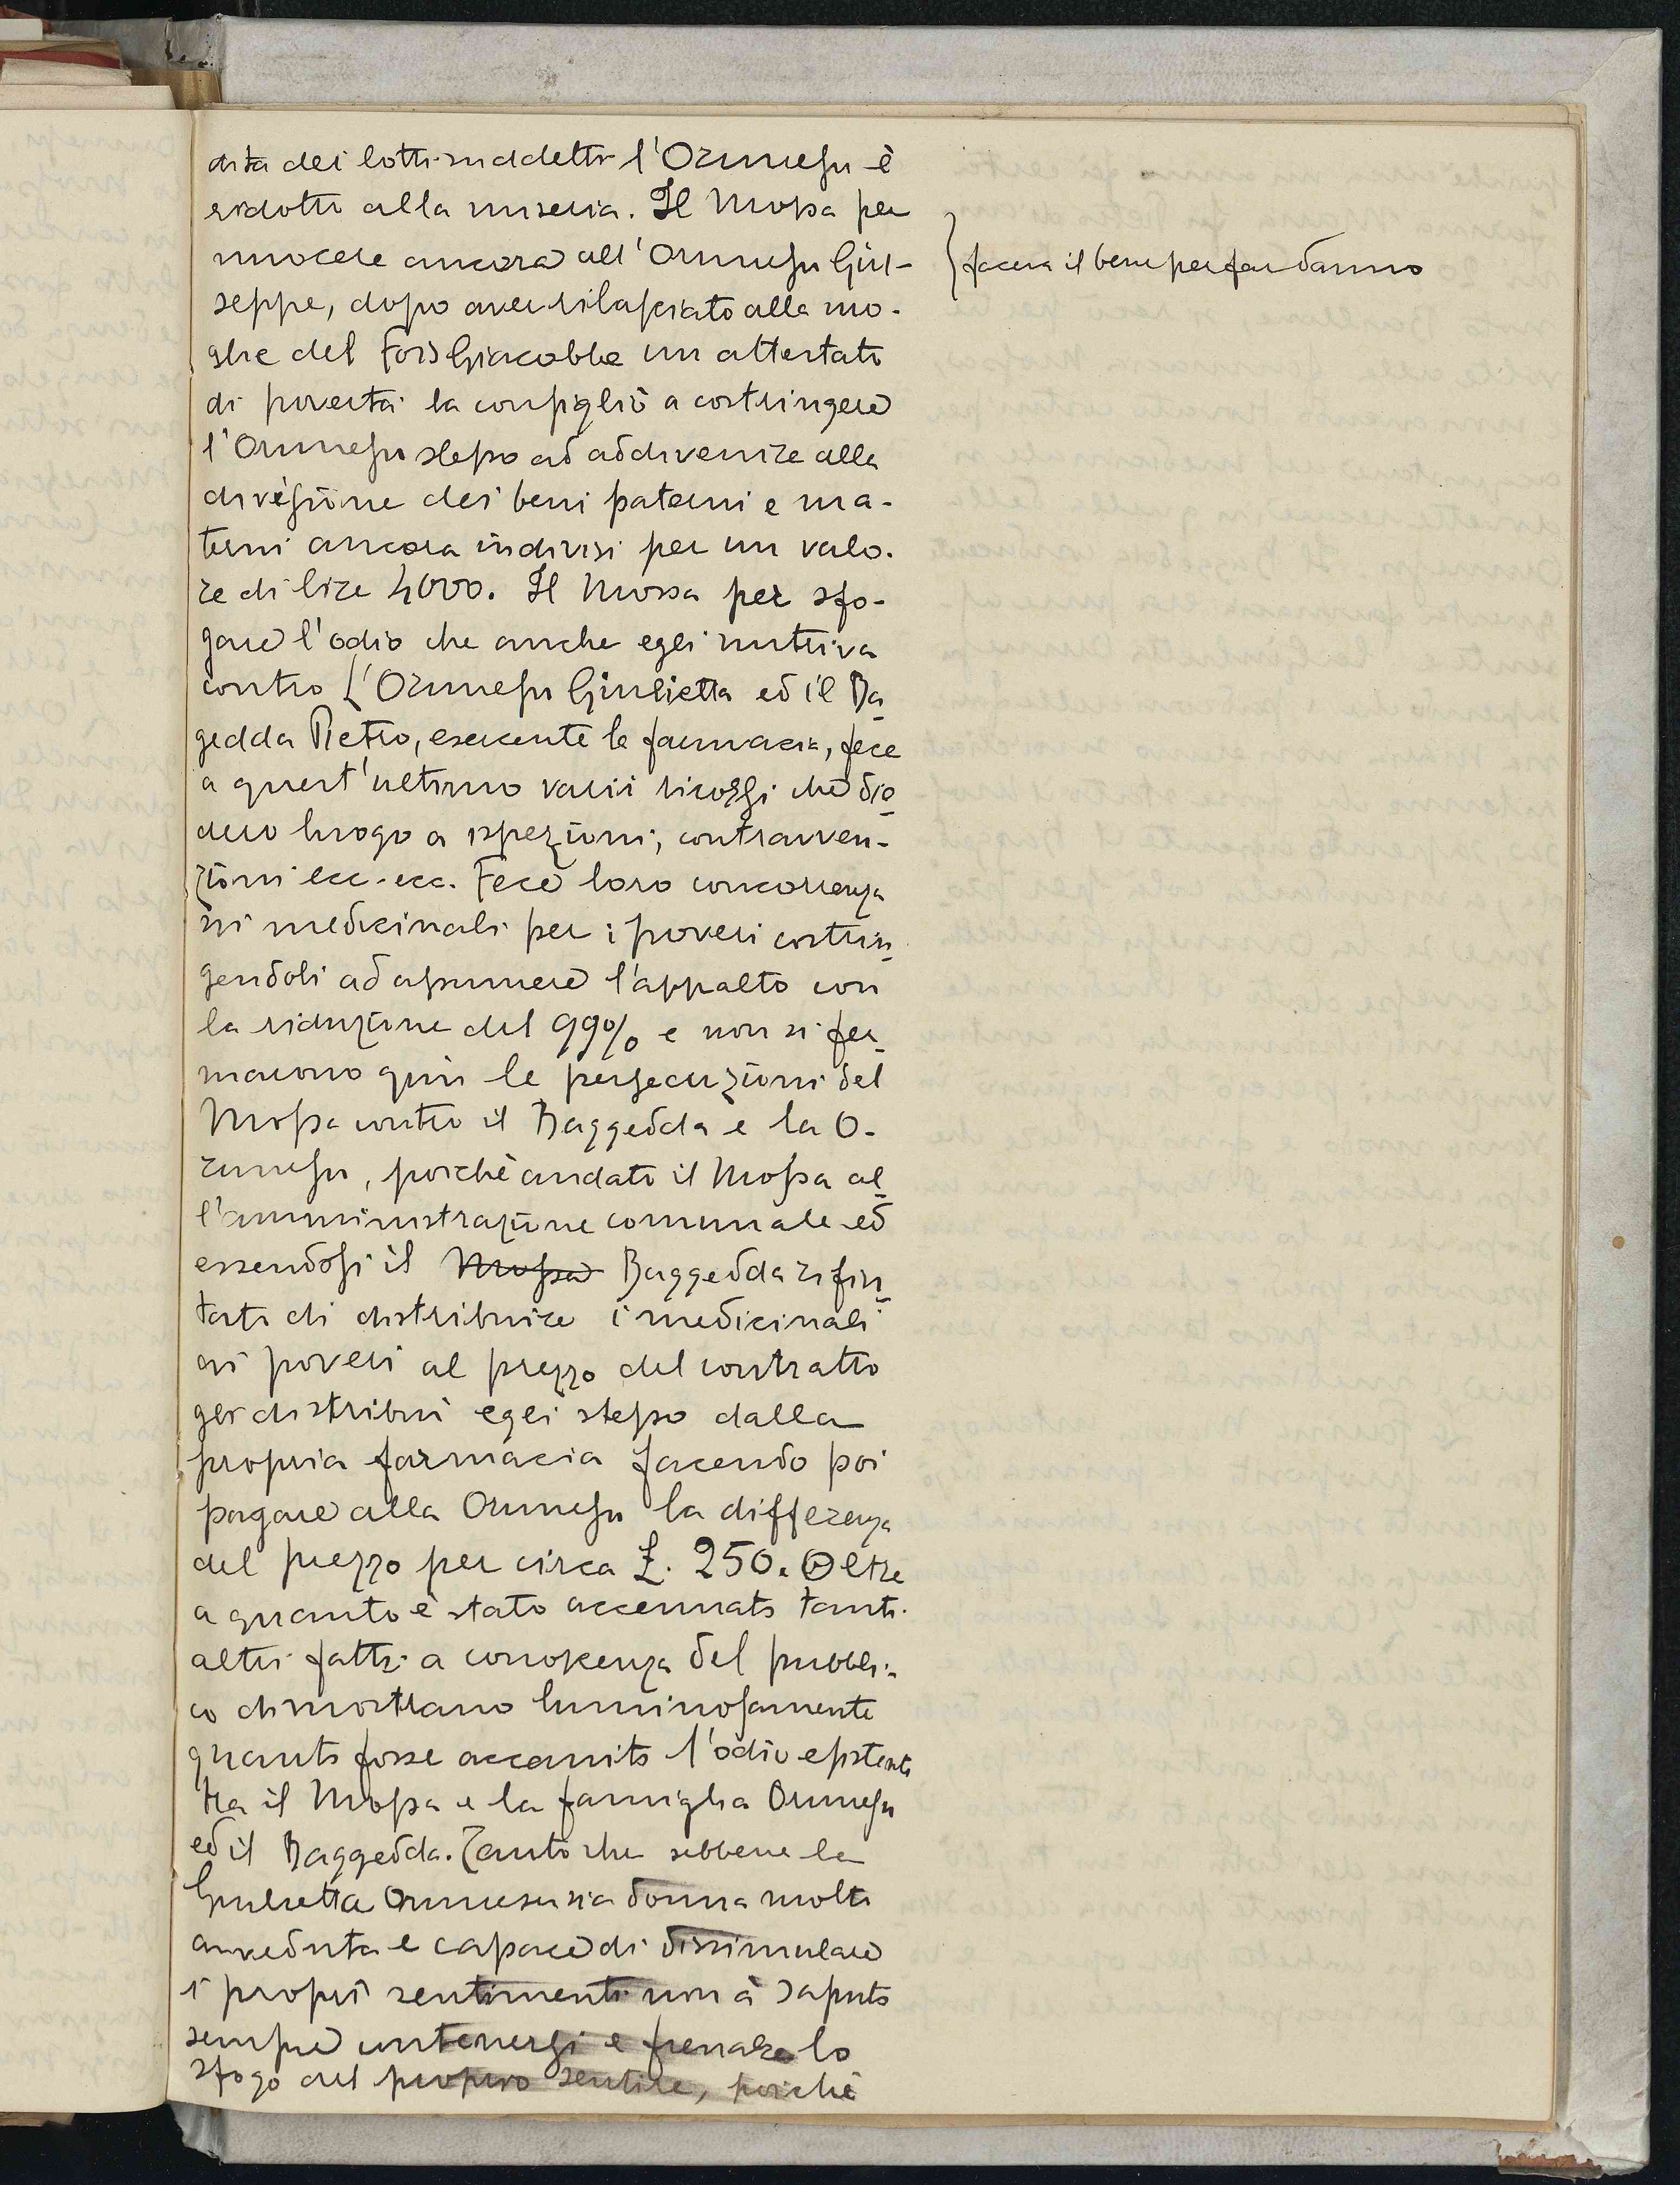 dita dei lotti suddetti l'Orunesu è
ridotto alla miseria. Il Mossa per
nuocere ancora all'Orunesu Giu-
} faceva il bene per far danno
seppe, dopo aver rilasciato alla mo-
glie del Fois Giacobbe un attestato
di povertà la consigliò a costringere
l'Orunesu stesso ad addivenire alla
divisione dei beni paterni e ma-
terni ancora indivisi per un valo-
re di lire 4000. Il Mossa per sfo-
gare l'odio che anche egli nutriva
contro L'Orunesu Giulietta ed il Ba
gedda Pietro, esercente la farmacia, fece
a quest'ultimo varii ricorsi che die
dero luogo a ispezioni, contravven-
zioni ecc. ecc. Fece loro concorrenza
ni medicinali per i poveri costrin
gendoli ad assumere l'appalto con
la riduzione del 99% e non si fer
marono quì le persecuzioni del
Mossa contro il Baggedda e la O-
runesu, poichè andato il Mossa al
l'amministrazione comunale ed
essendosi il Mossa Baggedda rifiu
tato di distribuire i medicinali
ai poveri al prezzo del contratto
gli distribuì egli stesso dalla
propria farmacia facendo poi
pagare alla Orunesu la differenza
del prezzo per circa £. 250. Oltre
a quanto è stato accennato tanti
altri fatti a conoscenza del pubbli-
co dimostrano luminosamente
quanto fosse accanito l'odio esistente
tra il Mossa e la famiglia Orunesu
ed il Baggedda. Tanto che sebbene la
Giulietta Orunesu sia donna molto
avveduta e capace di dissimulare
i proprî sentimenti non à saputo
sempre contenersi e frenare lo
sfogo del proprio sentire, poichè